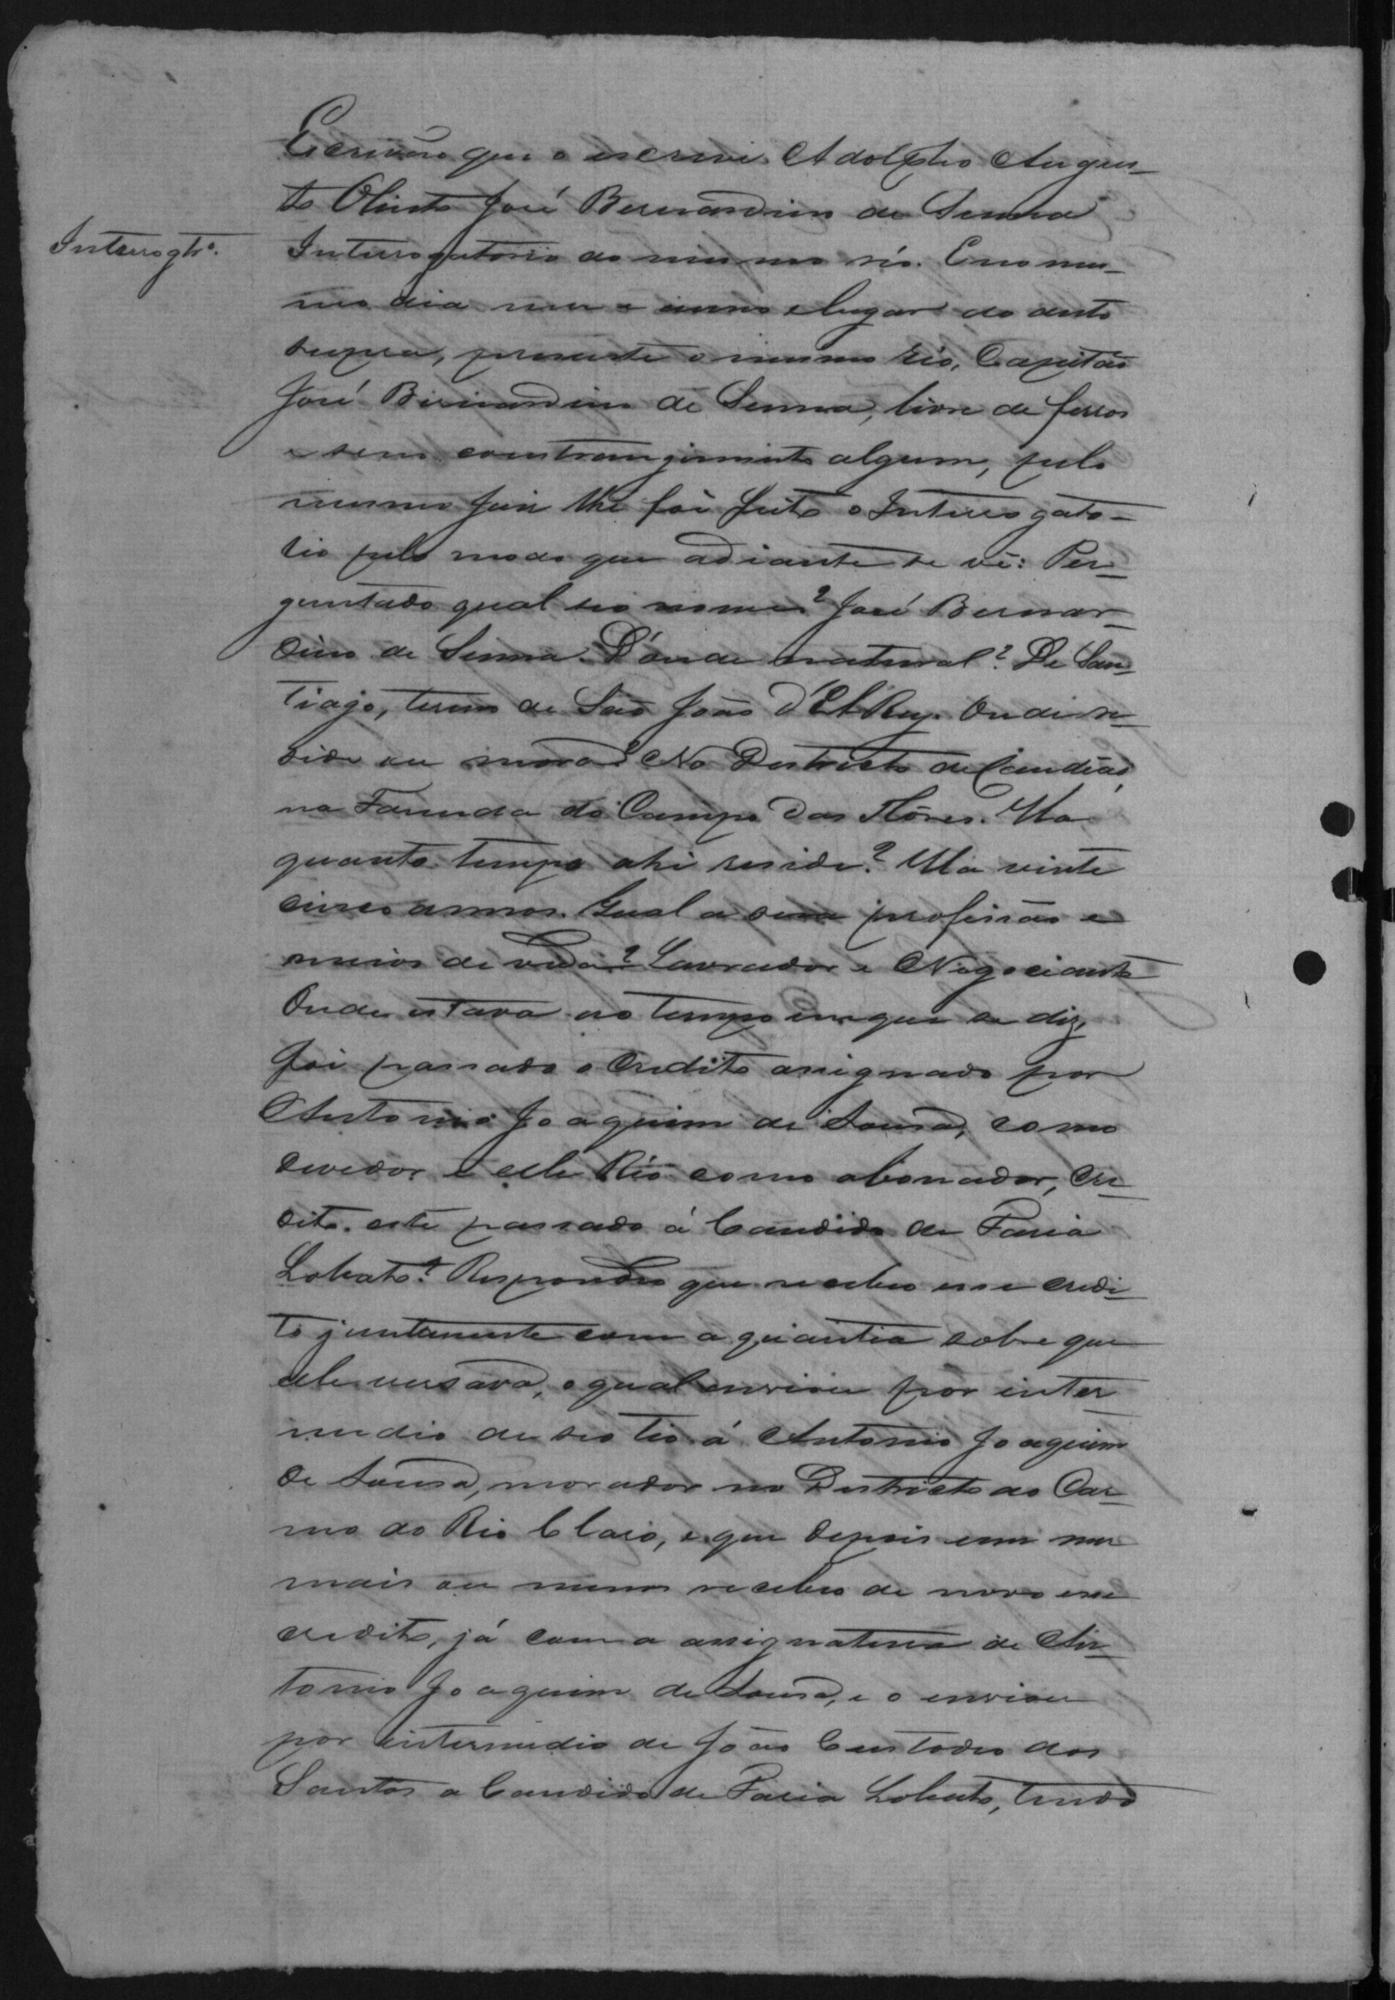 Escrivão que o escrevi. Adolpho Augus-
to Olinto José Bernardino de Senna
Interrogtº.
Interrogatorio ao mesmo réo. E no mes-
mo dia mez e anno e lugar do auto
supra, presente o mesmo réo, Capitão
José Bernardino de Senna, livre de ferros
e sem constrangimento algum, pelo
mesmo Juiz lhe foi feito o Interrogato-
rio pelo modo que adiante se vê: Per-
guntado qual seo nome? José Bernar-
dino de Senna. D'onde natural? De San-
tiago, termo de São João d'El Rey. Onde re-
side ou mora? No Districto de Candêas,
na Fazenda do Campo das Flôres. Ha
quanto tempo ahi reside? Ha vinte
cinco annos. Qual a sua profissão e
meios de vida? Lavrador e Negociante
Onde estava ao tempo em que se diz,
foi passado o credito assignado por
Antonio Joaquim de Sousa, como
devedor e elle Réo como abonador, cre-
dito este passado á Candido de Faria
Lobato? Respondeo que recebeo esse credi-
to juntamente com a quantia sobre que
elle versava, o qual enviou por inter
medio de seo tio á Antonio Joaquim
de Sousa, morador no Districto do Car-
mo do Rio Claro, e que depois um mez
mais ou menos recebeo de novo esse
credito, já com a assignatura de An-
tonio Joaquim de Sousa, e o enviou
por intermedio de João Custodio dos
Santos a Candido de Faria Lobato, tendo